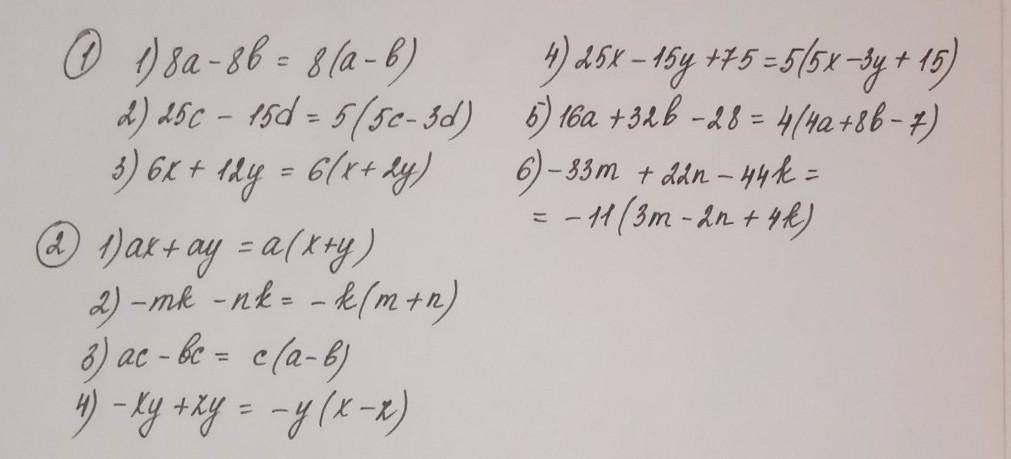 ① 1) 8a - 8b = 8(a - b)
2) 25c - 15d = 5(5c - 3d)
3) 6x + 12y = 6(x + 2y)
4) 25x - 15y + 75 = 5(5x - 3y + 15)
5) 16a + 32b - 28 = 4(4a + 8b - 7)
6) -33m + 22n - 44k =
= -11(3m - 2n + 4k)
② 1) ax + ay = a(x + y)
2) -mk - nk = -k(m + n)
3) ac - bc = c(a - b)
4) -xy + zy = -y(x - z)